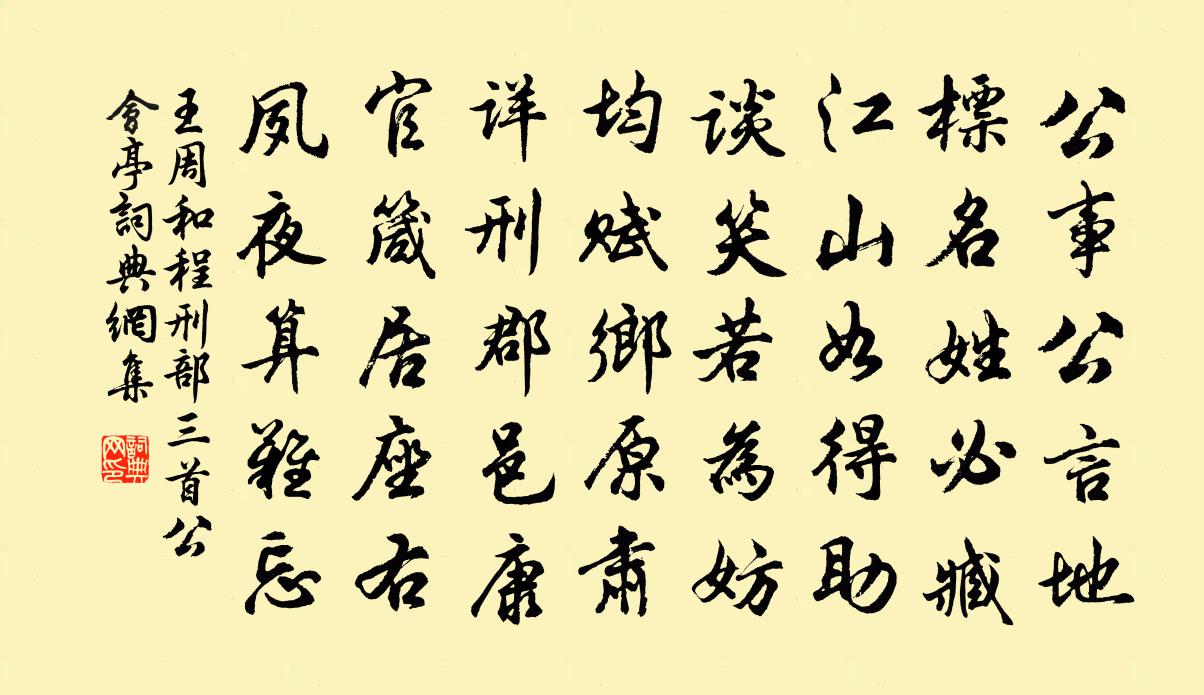 公事公言地
標名姓必臧
江山如得助
谈笑若為妨
均赋鄉原肅
详刑郡邑康
官箴居座右
夙夜算難忘
王周和程刑部三首公
會亭詞典網集
詞典网印